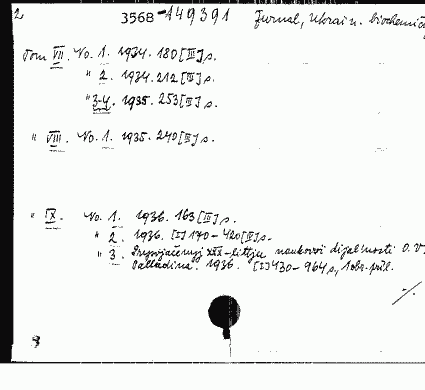 2 3568-149391 Žurnal, Ukrain. biochemič
Tom VII. No. 1. 1934. 180[III]s.
" 2. 1934. 212[III]s.
" 3-4. 1935. 253[III]s.
" VIII. No. 1. 1935. 240[III]s.
" IX. No. 1. 1936. 163[III]s.
" 2. 1936. [I]170-420[IV]s.
" 3. Prysvjačenyj XXX-littju naukovoi dijal'nosti O. V.
Palladina. 1936. [I]430-964s, 1obr. příl.
%